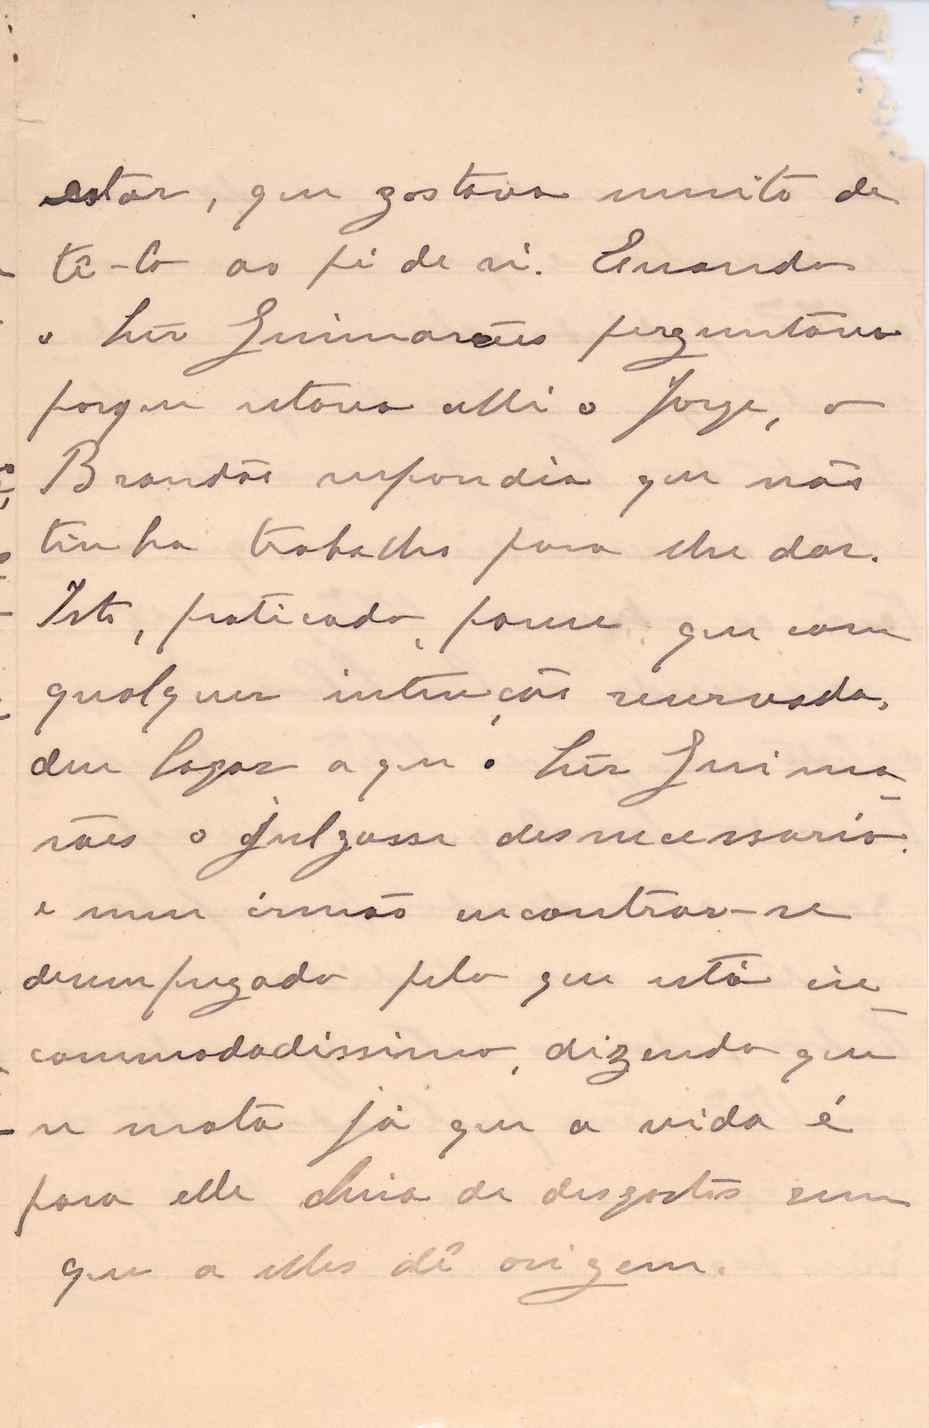 estar, que gostava muito de
tê-lo ao pé de si. E quando
o Snr Guimarães perguntava
porque estava alli o Jorge, o
Brandão respondia que não
tinha trabalho para lhe dar.
Isto, praticado, parece que com
qualquer intenção reservada,
deu logar a que o Snr Guima-
rães o julgasse desnecessario
e meu irmão encontrar-se
desempregado pelo que está in-
commodadissimo, dizendo que
se mata já que a vida é
para elle cheia de desgostos sem
que a elles dê origem.